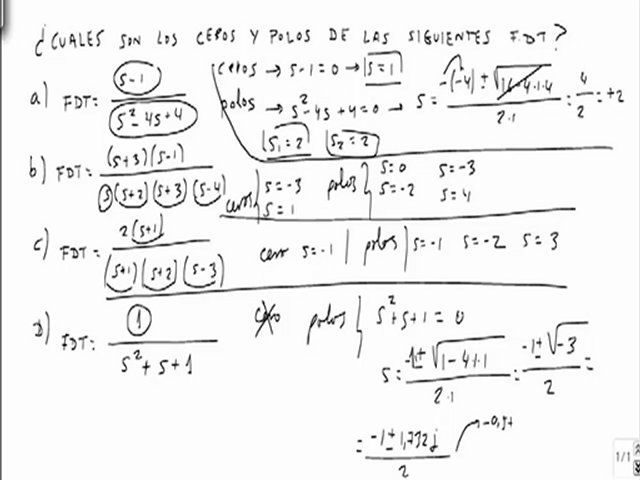 ¿CUALES SON LOS CEROS Y POLOS DE LAS SIGUIENTES F.D.T?
a) FDT: (s-1) / (s² - 4s + 4)
ceros → s-1=0 → s=1
polos → s² - 4s + 4 = 0 → s = (-(-4) ± √(16-4·1·4)) / (2·1) : 4/2 : +2
s₁=2 s₂=2
b) FDT: (s+3)(s-1) / s(s+2)(s+3)(s-4)
ceros { s=-3 s=1
polos { s=0 s=-3 s=-2 s=4
c) FDT: 2(s+1) / (s+1)(s+2)(s-3)
cero s=-1 | polos | s=-1 s=-2 s=3
D) FDT: 1 / (s² + s + 1)
cero polos { s² + s + 1 = 0
s: (-1 ± √(1-4·1·1)) / (2·1) : (-1 ± √-3) / 2 =
= (-1 ± 1,732j) / 2 → -0,5+
1/1